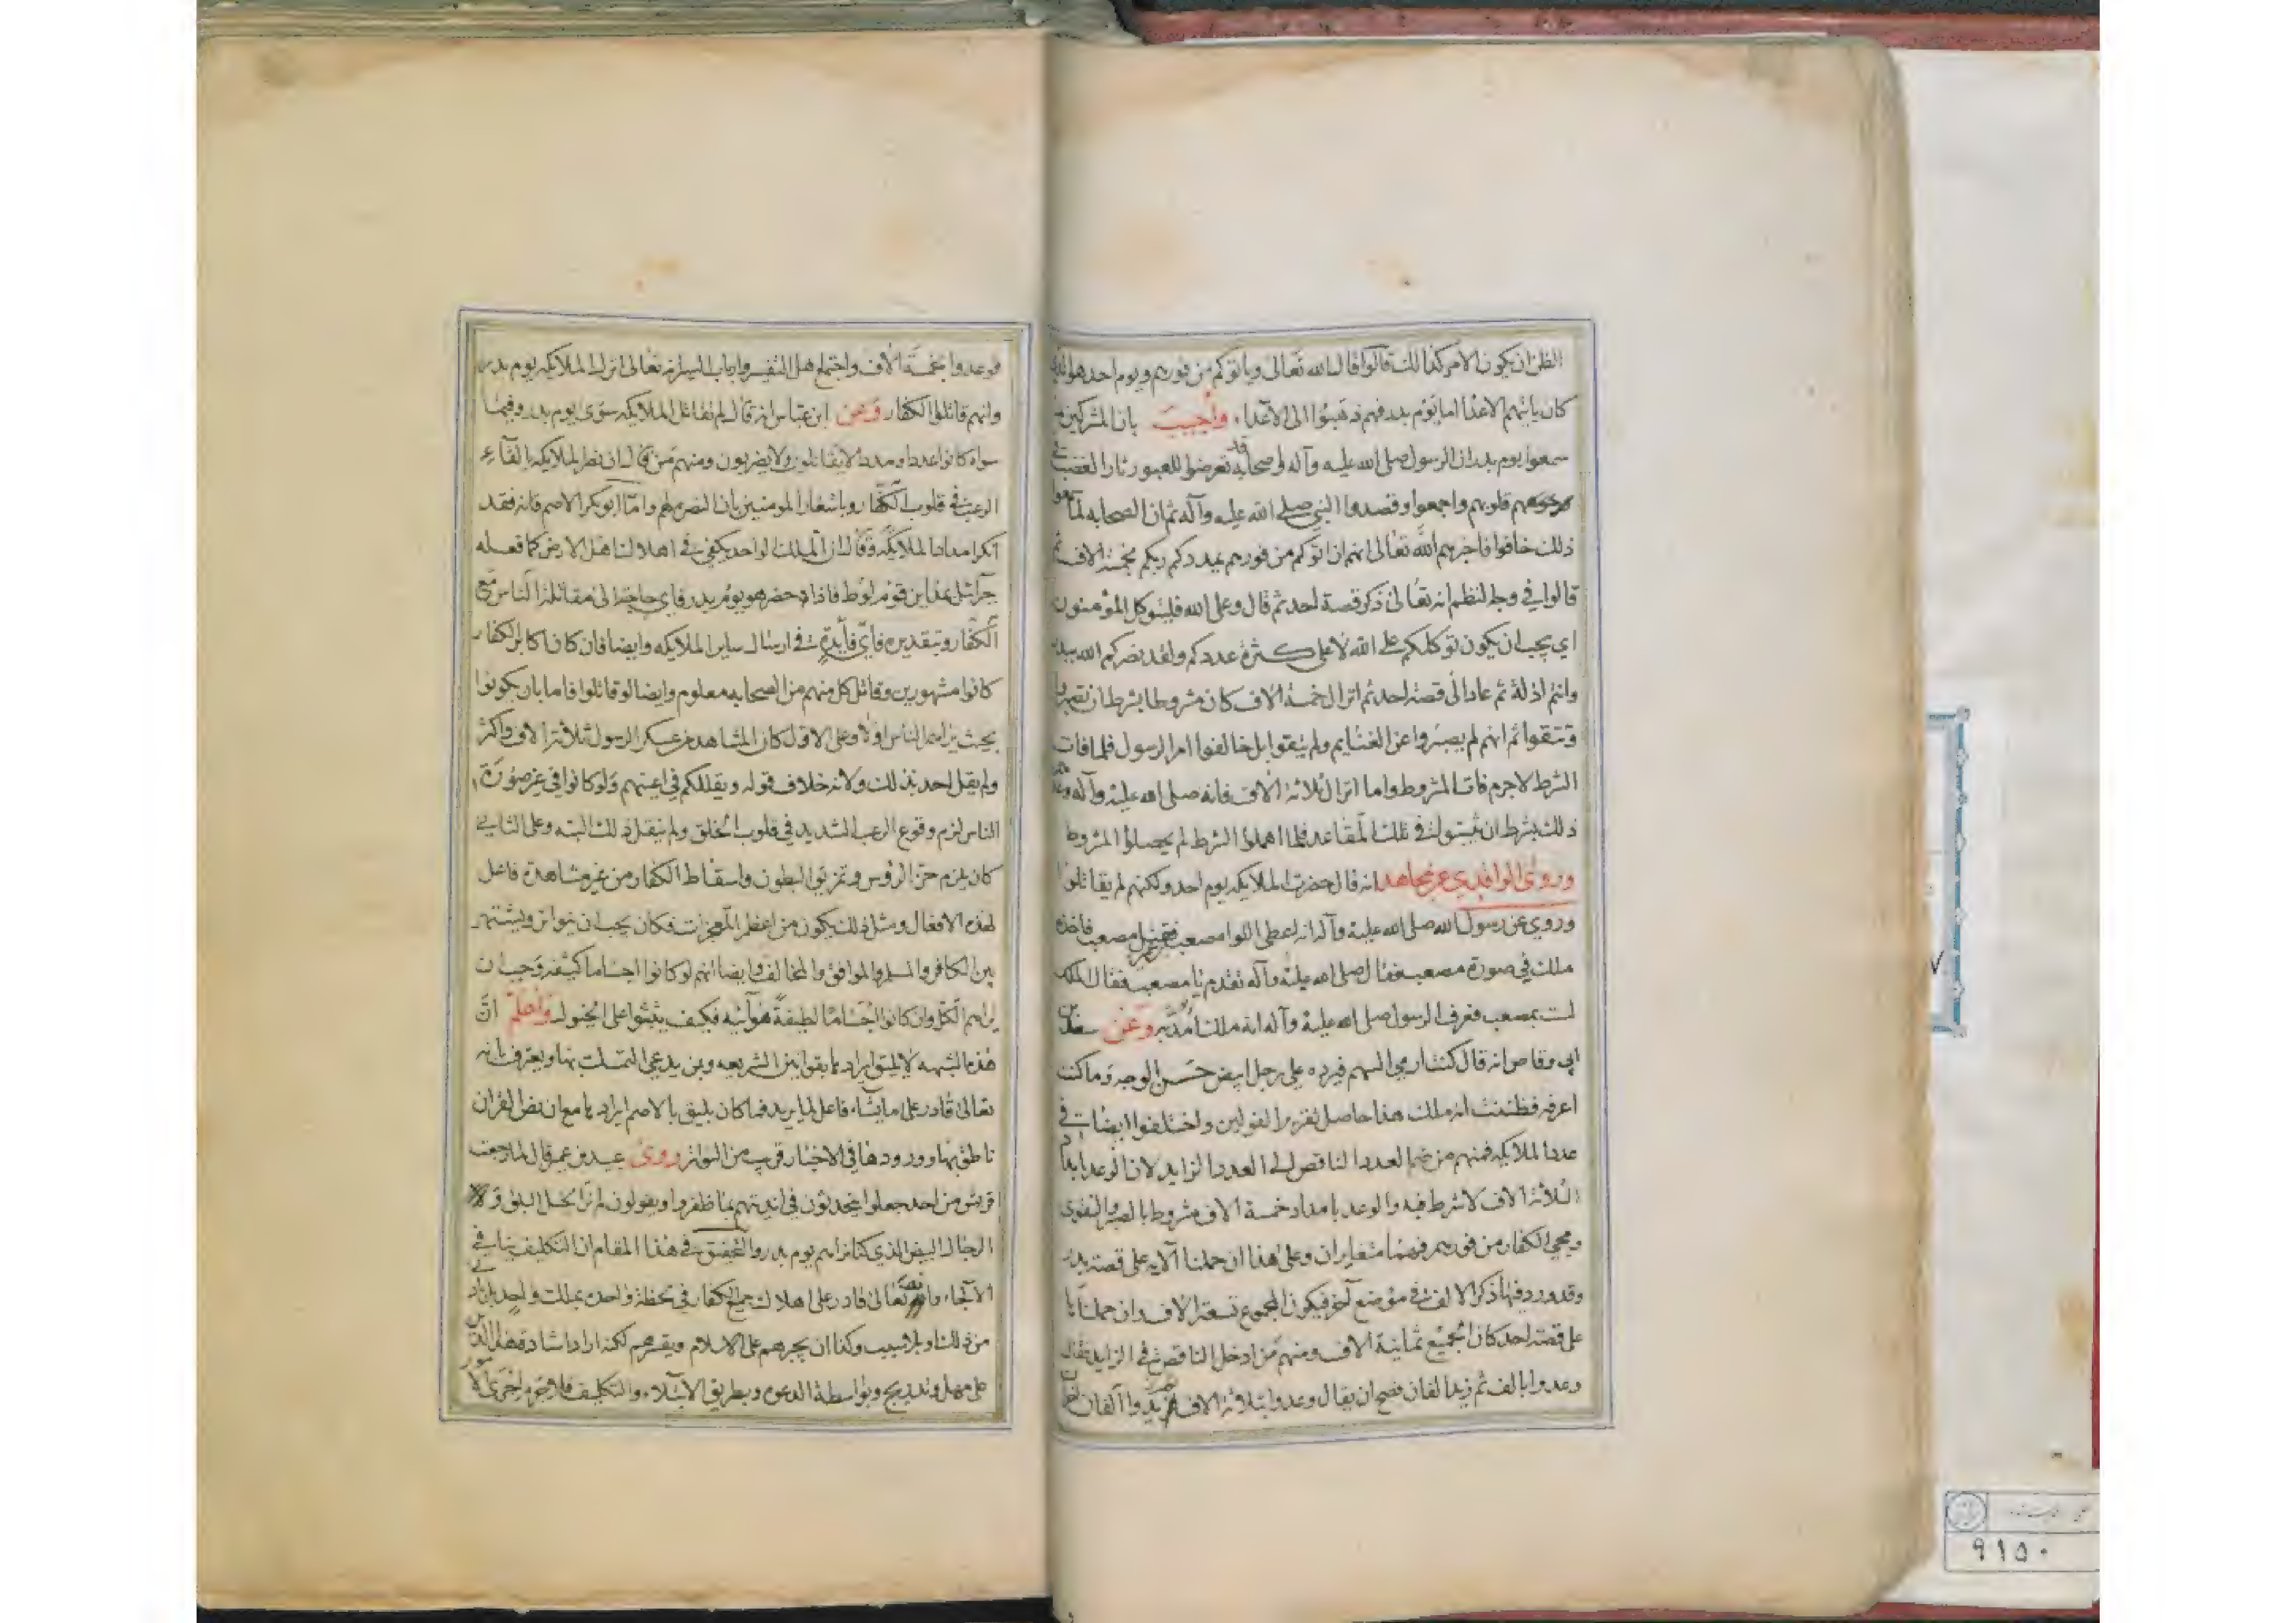 الظن ان يكون الامر كذلك قالوا قال الله تعالى وياتوكم من فورهم ويوم احد هو الذي
كان ياتيهم الاعداء اما يوم بدر فهم ذهبوا الى الاعداء واجيب بان المشركين
سمعوا يوم بدر ان الرسول صلى الله عليه وآله واصحابه قد تعرضوا للعير ثار الغضب في
قلوبهم واجمعوا وقصدوا النبي صلى الله عليه وآله ثم ان الصحابه لما سمعوا
ذلك خافوا فاخبرهم الله تعالى انهم ان اتوكم من فورهم يمددكم ربكم بخمسة الاف ثم
قالوا في وجه النظم انه تعالى ذكر قصة احد ثم قال وعلى الله فليتوكل المؤمنون
اي يجب ان يكون توكلكم على الله لا على كثرة عددكم ولقد نصركم الله ببدر
وانتم اذلة ثم عاد الى قصة احد ثم انزال خمسة الاف كان مشروطا بشرط ان تصبروا
وتتقوا ثم انهم لم يصبروا عن الغنايم ولم يتقوا بل خالفوا امر الرسول فلما فات
الشرط لاجرم فات المشروط واما انزال ثلاثة الاف فانه صلى الله عليه وآله وعد
ذلك بشرط ان يثبتوا في تلك المقاعد فلما اهملوا الشرط لم يحصلوا المشروط
وروى الواقدي عن مجاهد انه قال حضرت الملايكه يوم احد ولكنهم لم يقاتلوا
وروي عن رسول الله صلى الله عليه وآله انه اعطى اللوا مصعب فقتل مصعب فاخذه
ملك في صورة مصعب فقال صلى الله عليه وآله تقدم يا مصعب فقال الملك
لست بمصعب فعرف الرسول صلى الله عليه وآله انه ملك امد به وعن سعد بن
ابي وقاص انه قال كنت ارمي السهم فيرده على رجل ابيض حسن الوجه وما كنت
اعرفه فظننت انه ملك هذا حاصل تقرير القولين واختلفوا ايضا في
عدد الملايكه فمنهم من ضم العدد الناقص الى العدد الزايد لان الوعد بامداد
الثلاثة الاف لا شرط فيه والوعد بامداد خمسة الاف مشروط بالصبر والتقوى
ومجي الكفار من فورهم فهما متغايران وعلى هذا ان حملنا الآيه على قصة بدر
وقد ورد فيها ذكر الالف في موضع آخر فيكون المجموع تسعة الاف وان حملناها
على قصة احد كان الجميع ثمانية الاف ومنهم من ادخل الناقص في الزايد فقال
وعدوا بالف ثم زيد الفان فصح ان يقال وعدوا بثلاثة الاف ثم زيدوا الفان
فوعدوا بخمسة الاف واجتمع اهل التفسير وارباب السير انه تعالى انزل الملايكه يوم بدر
وانهم قاتلوا الكفار وعن ابن عباس انه قال لم تقاتل الملايكه سوى يوم بدر وفيما
سواه كانوا عددا ومددا لا يقاتلون ولا يضربون ومنهم من قال ان نصر الملايكه بالقاء
الرعب في قلوب الكفار وباشعار المومنين بان النصر لهم واما ابو بكر الاصم فانه فقد
انكر امداد الملايكه وقال ان الملك الواحد يكفي في اهلاك اهل الارض كما فعله
جبرائيل بمداين قوم لوط فاذا حضر هو يوم بدر فاي حاجة الى مقاتلة الناس مع
الكفار وبتقديره فاي فايدة في ارسال ساير الملايكه وايضا فان كان اكابر الكفار
كانوا مشهورين وقاتل كل منهم من الصحابه معلوم وايضا لو قاتلوا فاما بان يكونوا
بحيث يراهم الناس اولا وعلى الاول كان المشاهد من عسكر الرسول ثلاثة الاف واكثر
ولم يقل احد بذلك ولانه خلاف قوله ويقللكم في اعينهم ولو كانوا في غير صورة
الناس لزم وقوع الرعب الشديد في قلوب الخلق ولم ينقل ذلك البته وعلى الثاني
كان يلزم حز الرؤس وتمزيق البطون واسقاط الكفار من غير مشاهدة فاعل
لهذه الافعال ومثل ذلك يكون من اعظم المعجزات فكان يجب ان يتواتر ويشتهر
بين الكافر والمسلم والموافق والمخالف وايضا انهم لو كانوا اجساما كثيفه وجب ان
يراهم الكل وان كانوا اجساما لطيفة هوائيه فكيف يثبتوا على الخيول واعلم ان
هذه الشبهه لا يليق ايرادها بقوانين الشريعه وبمن يدعي التمسك بها ويعترف بانه
تعالى قادر على ما يشاء فاعل لما يريد فما كان يليق بالاصم ايرادها مع ان نص القران
ناطق بها وورودها في الاخبار قريب من التواتر روى عبيد بن عمير قال لما رجعت
قريش من احد جعلوا يتحدثون في انديتهم بما ظفروا ويقولون لم نر الخيل البلق ولا
الرجال البيض الذي كنا نراهم يوم بدر والتحقيق في هذا المقام ان التكليف ينافي
الالجاء وانه تعالى قادر على اهلاك جميع الكفار في لحظة واحده بملك واحد بل بادنى
من ذلك او بلا سبب وكذا ان يجبرهم على الاسلام ويقسرهم لكنه اراد اشادة هذا الدين
على مهل وتدريج وبواسطة الدعوه وبطريق الابتلاء والتكليف فلا جرم اجرى الامور
٩١٥٠